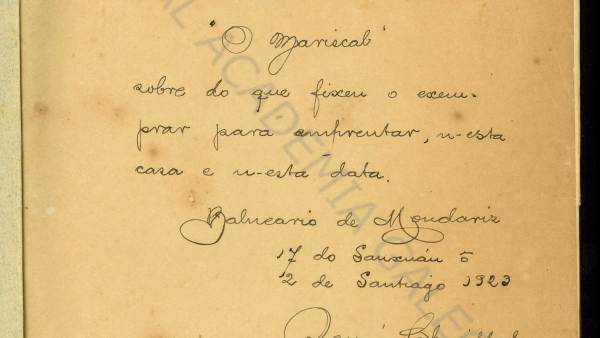 "O Mariscal"
sobre do que fixen o exem-
prar para emprentar, n-esta
casa e n-esta data.
Balneario de Mondariz
17 do Sanxuán ô
2 de Santiago 1923
REAL ACADEMIA GALEGA